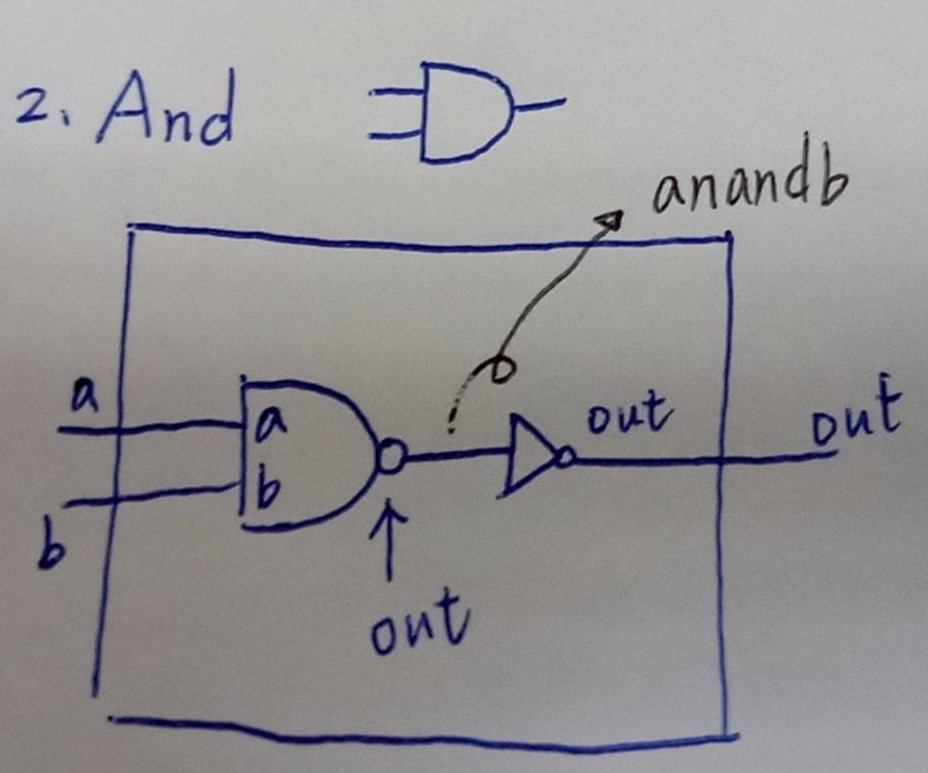 2. And
anandb
a
a
out
out
b
b
out